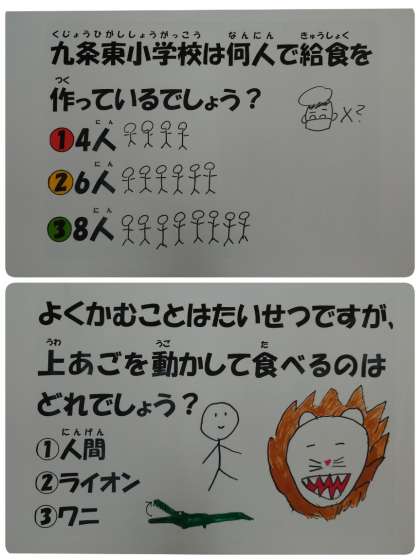 くじょうひがししょうがっこう なんにん きゅうしょく
九条東小学校は何人で給食を
つく
作っているでしょう？
X?
にん
①4人
にん
②6人
にん
③8人
よくかむことはたいせつですが、
うわ うご た
上あごを動かして食べるのは
どれでしょう？
にんげん
①人間
②ライオン
③ワニ